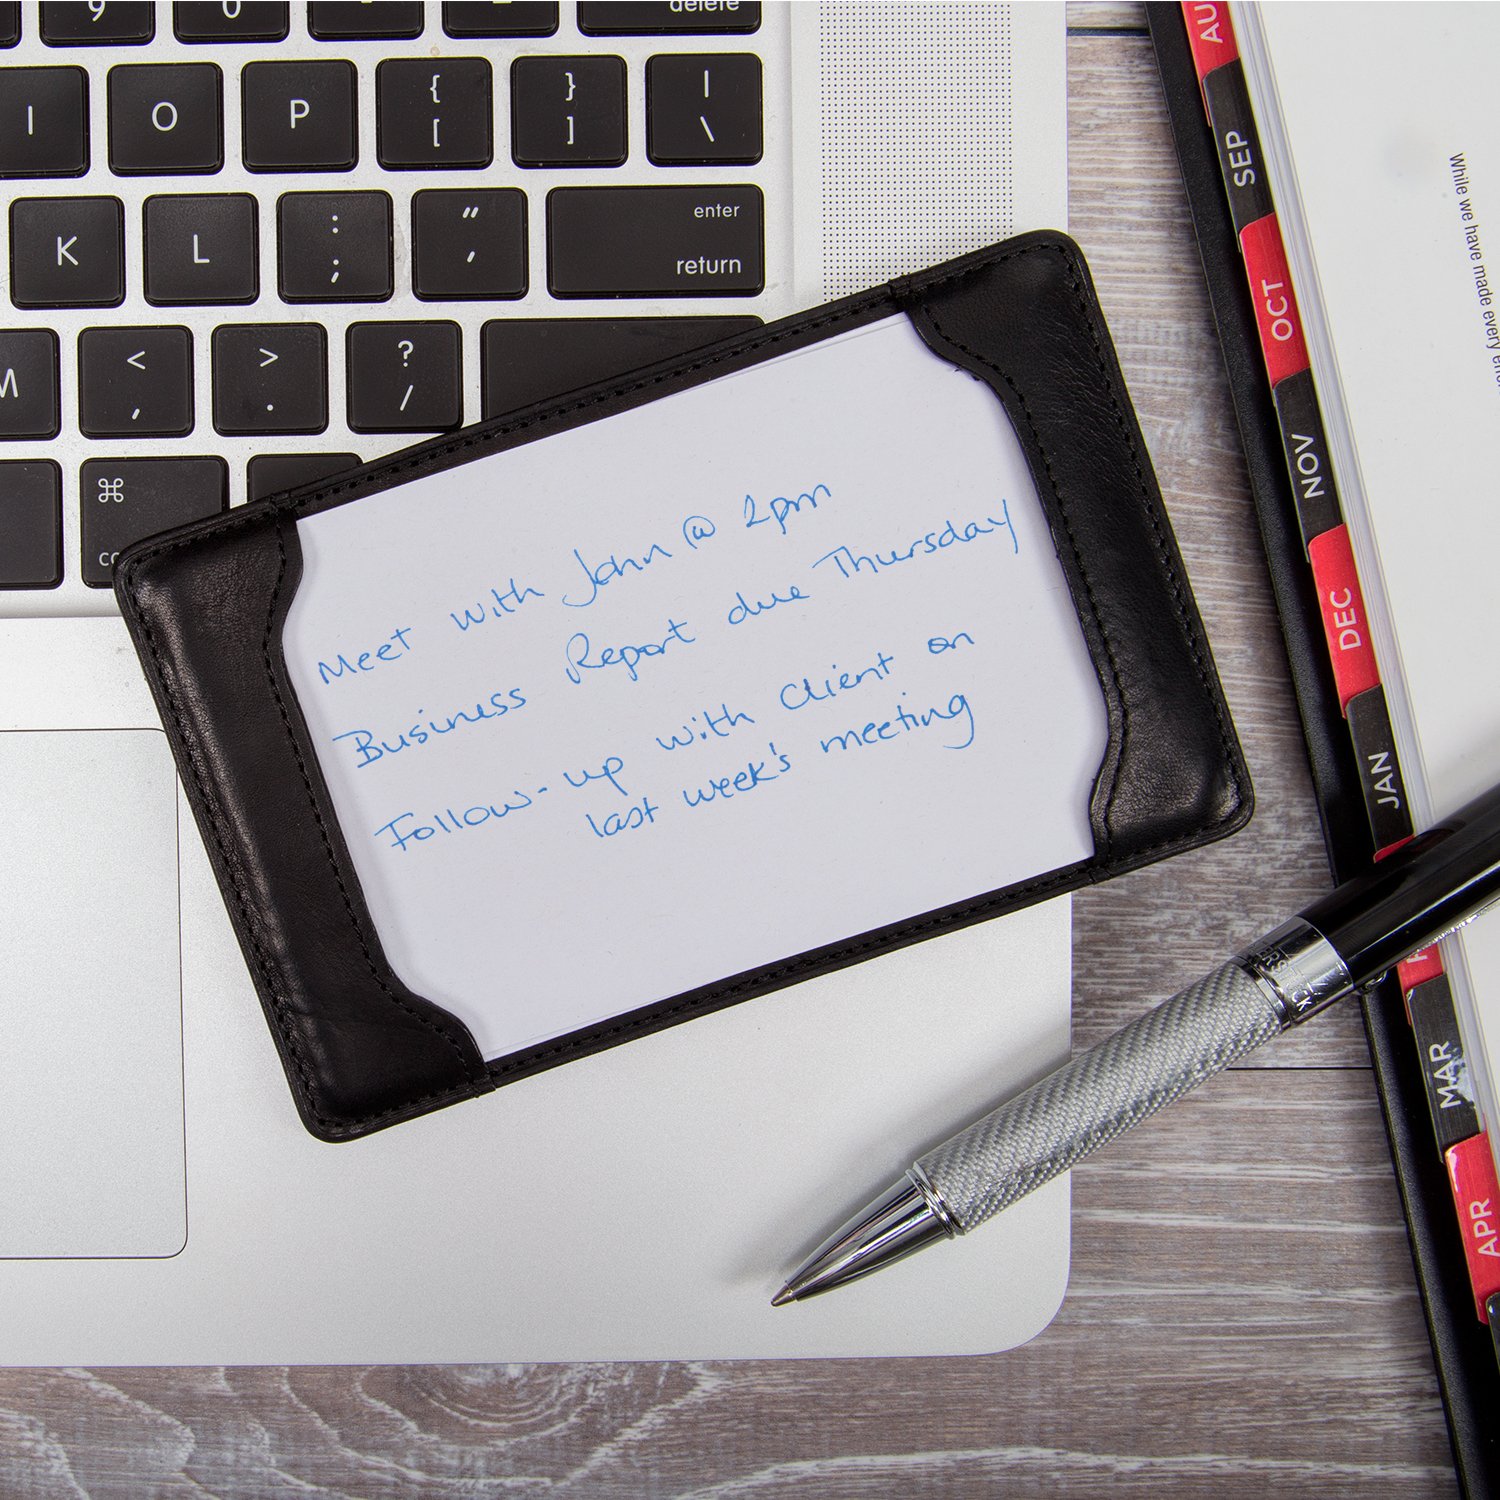 9 0 delete
I O P { [ } ] | \
K L : ; " ' enter return
M < , > . ? /
⌘
Meet with John @ 2pm
Business Report due Thursday
Follow-up with client on
last week's meeting
SEP
OCT
NOV
DEC
JAN
MAR
APR
While we have made every